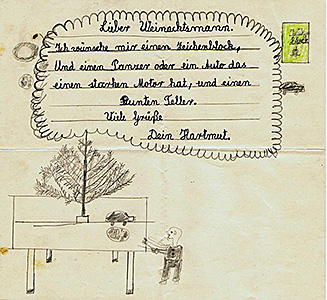 Lieber Weinachtsmann.
Ich wünsche mir einen Zeichenblock,
Und einen Panzer oder ein Auto das
einen starken Motor hat, und einen
Bunten Teller.
Viele Grüße
Dein Hartmut.